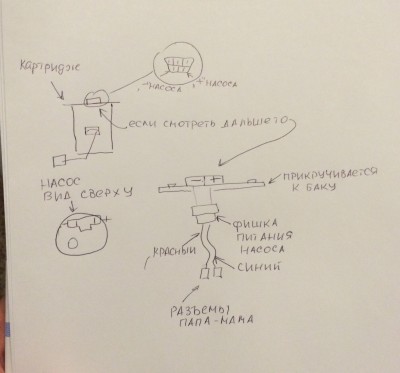 КАРТРИДЖ
-НАСОСА
+НАСОСА
ЕСЛИ СМОТРЕТЬ ДАЛЬШЕГО
НАСОС
ВИД СВЕРХУ
+
- +
ПРИКРУЧИВАЕТСЯ
К БАКУ
ФИШКА
ПИТАНИЯ
НАСОСА
КРАСНЫЙ
СИНИЙ
РАЗЪЕМЫ
ПАПА-МАМА